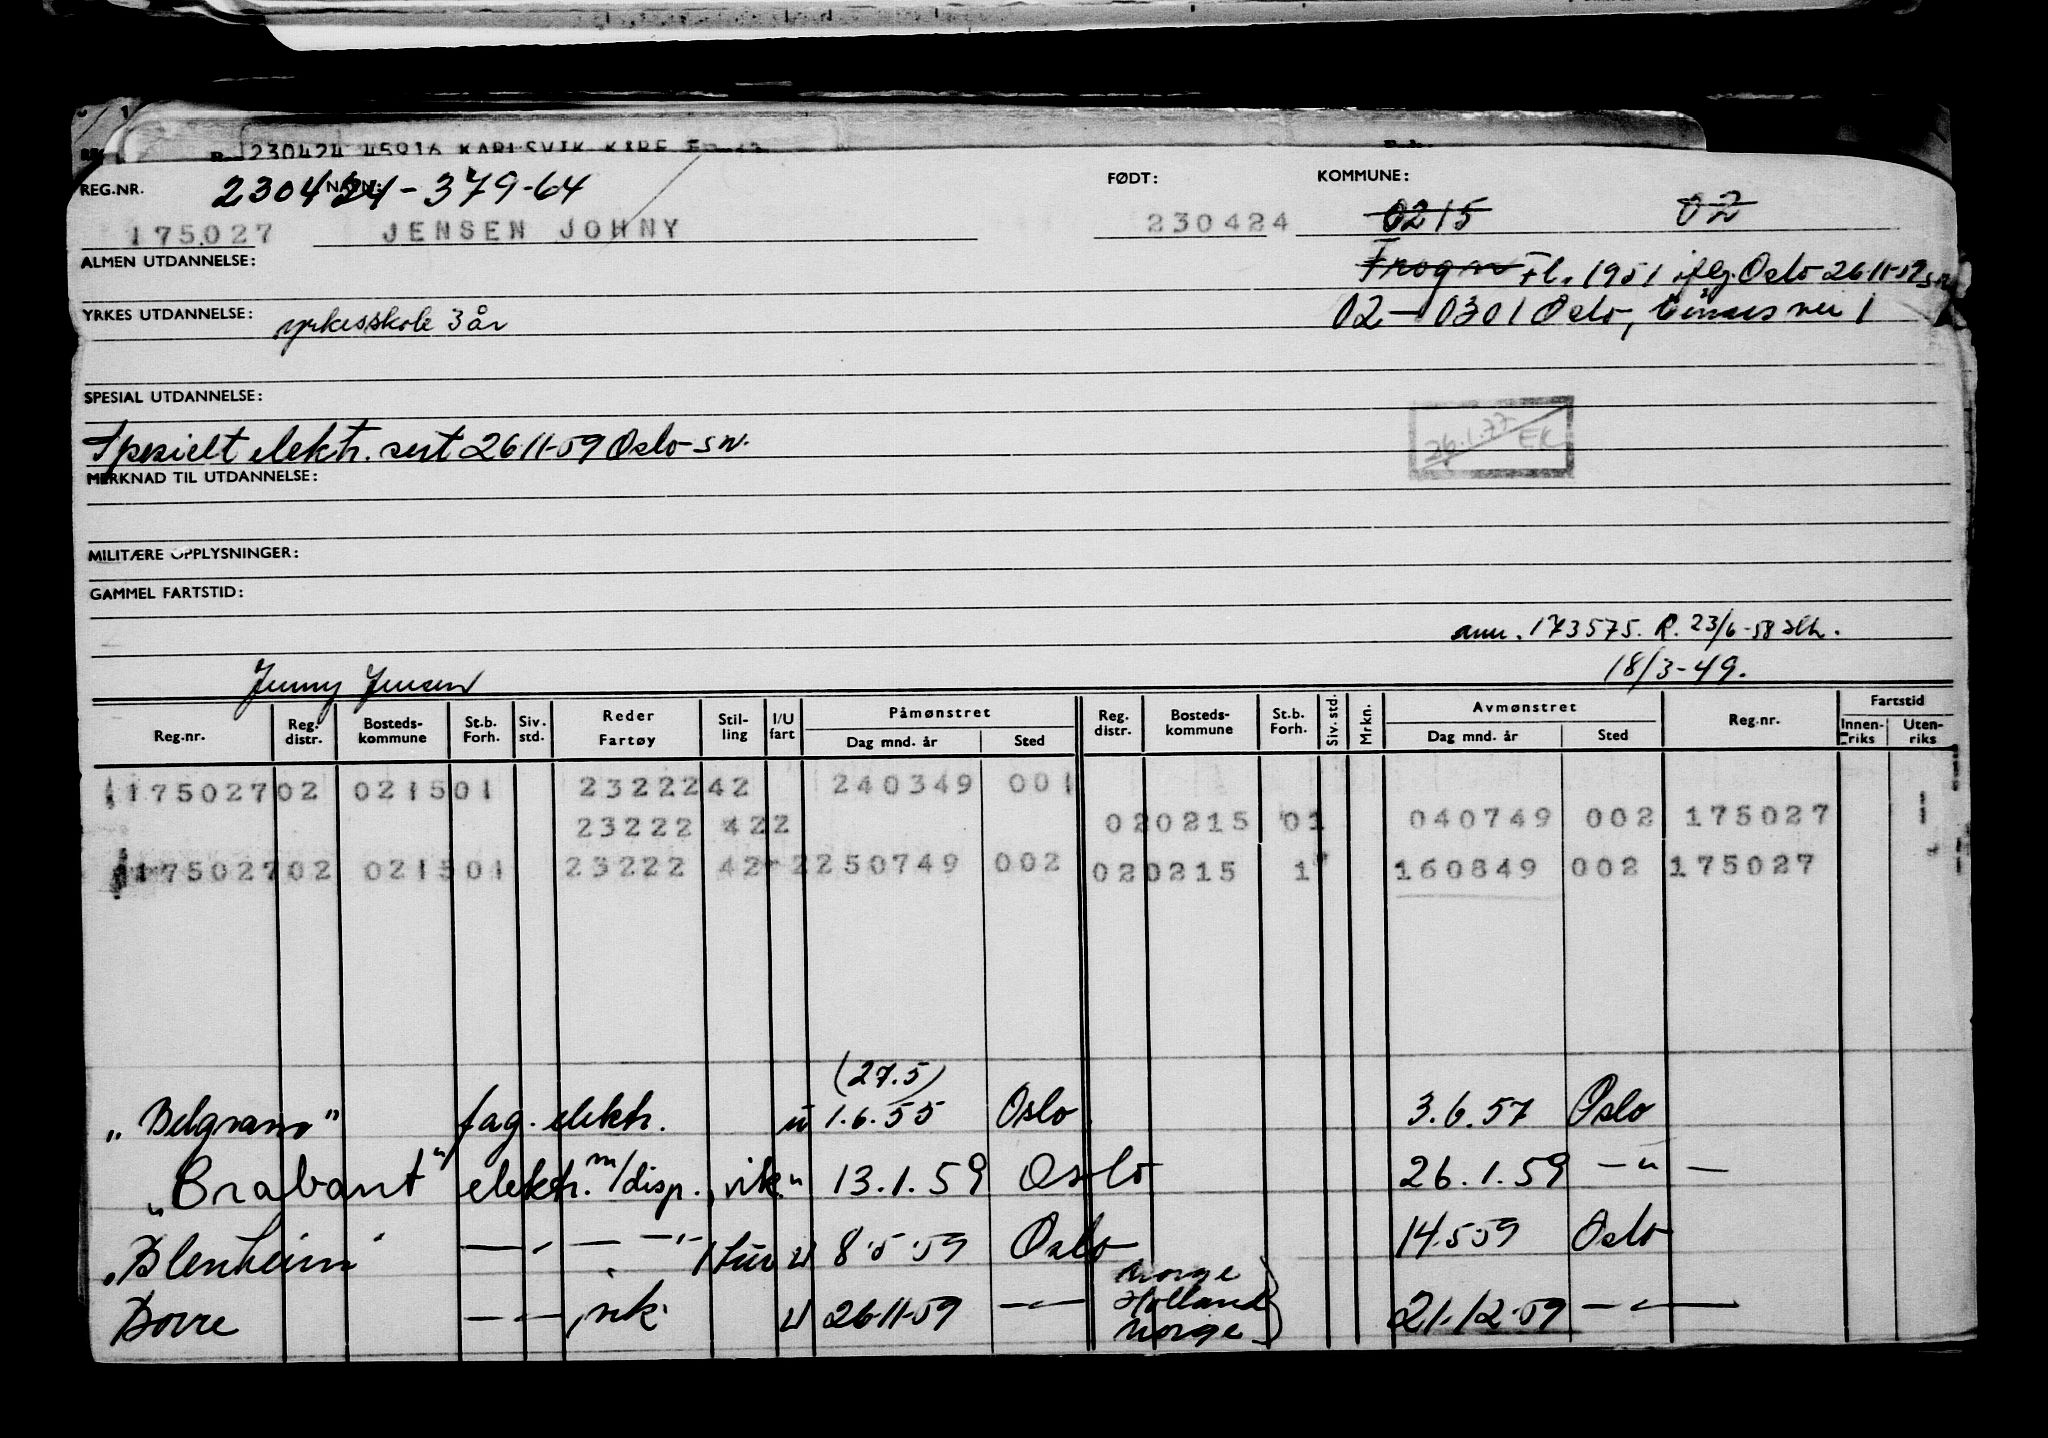 230424 45916 KARLSVIK KÅRE
REG.NR. NAVN: FØDT: KOMMUNE:
230424-379-64 0215 02
175027 JENSEN JOHNY 230424
ALMEN UTDANNELSE: Frogn Fl. 1951 iflg. Oslo 26 11-59
YRKES UTDANNELSE: yrkesskole 3 år 02-0301 Oslo, 1
SPESIAL UTDANNELSE:
26.1.77 EK
Spesielt elektr. sert 26 11-59 Oslo-sn.
MERKNAD TIL UTDANNELSE:
MILITÆRE OPPLYSNINGER:
GAMMEL FARTSTID:
ann. 173575. R. 23/6-58
18/3-49.
Jenny Jensen
Reg.nr. Reg. distr. Bosteds-kommune St.b. Forh. Siv. std. Reder Fartøy Stil-ling I/U fart Påmønstret Dag mnd. år Sted Reg. distr. Bosteds-kommune St.b. Forh. Siv. std. Mrkn. Avmønstret Dag mnd. år Sted Reg.nr. Fartstid Innen-riks Uten-riks
175027 02 0215 01 23222 42 240349 001
23222 422 02 0215 01 040749 002 175027
175027 02 0215 01 23222 42 2 250749 002 02 0215 1 160849 002 175027
(27.5)
"Belgrano" fag. elektr. u 1.6.55 Oslo 3.6.57 Oslo
"Brabant" elektr. m/disp., vik. u 13.1.59 Oslo 26.1.59 — " —
"Blenheim" — " — — " — 1 tur U 8.5.59 Oslo 14.5.59 Oslo
Norge
Holland
Dovre — " — , vik. U 26 11-59 — " — Norge 21.12.59 — " —